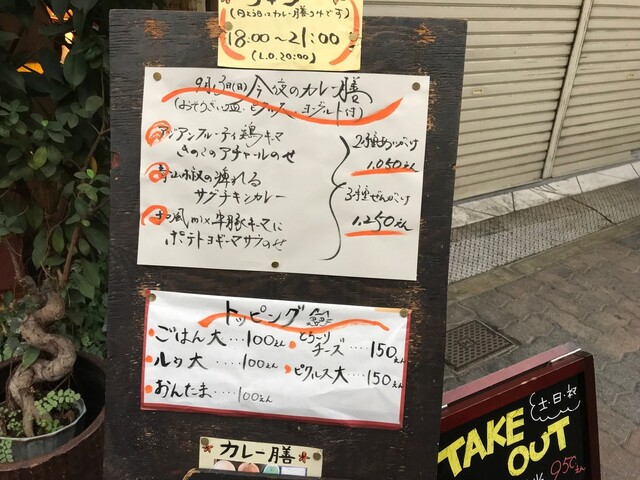 (日よう日はカレー膳のみです)
18:00〜21:00
(L.O.20:00)
今夜のカレー膳
アジアンフルーティ鶏キーマ
きのこのアチャールのせ
青山椒の痺れる
サグチキンカレー
和風mix牛豚キーマに
ポテトヨーグマサラのせ
2種あいがけ
1,050えん
3種ぜんがけ
1,250えん
トッピング
ごはん大…100えん
ルウ大…100えん
おんたま…100えん
とろ〜り
チーズ…150えん
ピクルス大…150えん
カレー膳
土・日・祝
TAKE
OUT
950えん